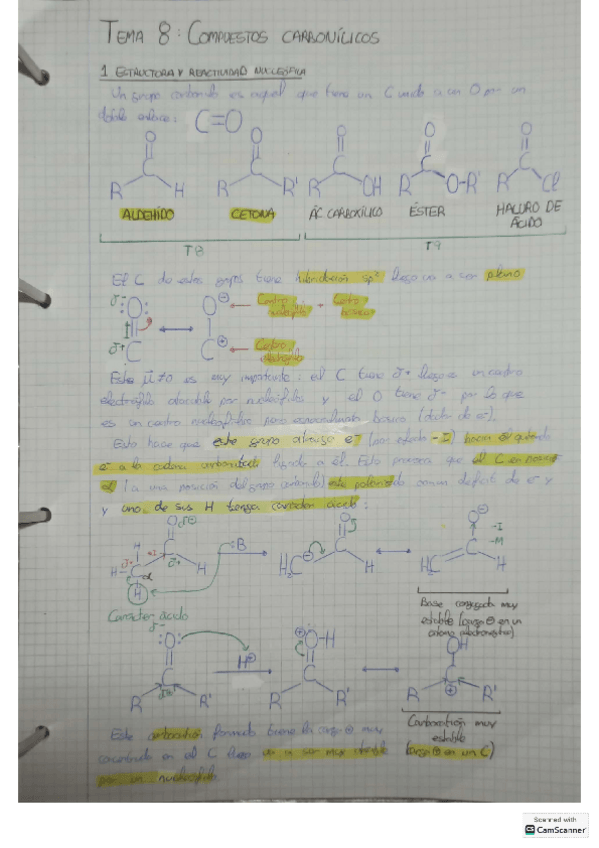 TEMA 8: COMPUESTOS CARBONÍLICOS
1 ESTRUCTURA Y REACTIVIDAD NUCLEÓFILA
Un grupo carbonilo es aquel que tiene un C unido a un O por un
doble enlace: C=O
O O O O O
C C C C C
R H R R' R OH R O-R' R Cl
ALDEHÍDO CETONA ÁC CARBOXÍLICO ÉSTER HALURO DE
ÁCIDO
T8 T9
El C de estos grupos tiene hibridación sp² luego va a ser plano
δ- :O: O⊖ ← Centro nucleófilo + Centro básico
δ+ C ↔ C⊕ ← Centro electrófilo
Este μ≠0 es muy importante: el C tiene δ+ luego es un centro
electrófilo atacable por nucleófilos y el O tiene δ- por lo que
es un centro nucleófilo pero especialmente básico (dador de e-).
Esto hace que este grupo atraiga e- (por efecto -I) hacia él quitando
e- a la cadena carbonatada ligada a él. Esto provoca que el C en posición
α (a una posición del grupo carbonilo) esté polarizado con un déficit de e- y
y uno de sus H tenga carácter ácido:
O δ- O O⊖ -I
-M
H H -I C δ+ :B H₂C⊖ C H H₂C C H
H C α H
H
Carácter ácido
Base conjugada muy
estable (carga ⊖ en un
átomo electronegativo)
δ-
:O: ⊕:O-H OH
H⊕
C δ+ C C ⊕
R R' R R' R R'
Carbocatión muy
estable
(carga ⊕ en un C)
Este carbocatión formado tiene la carga ⊕ muy
localizada en el C luego va a ser muy atacable
por un nucleófilo.
Scanned with
CamScanner